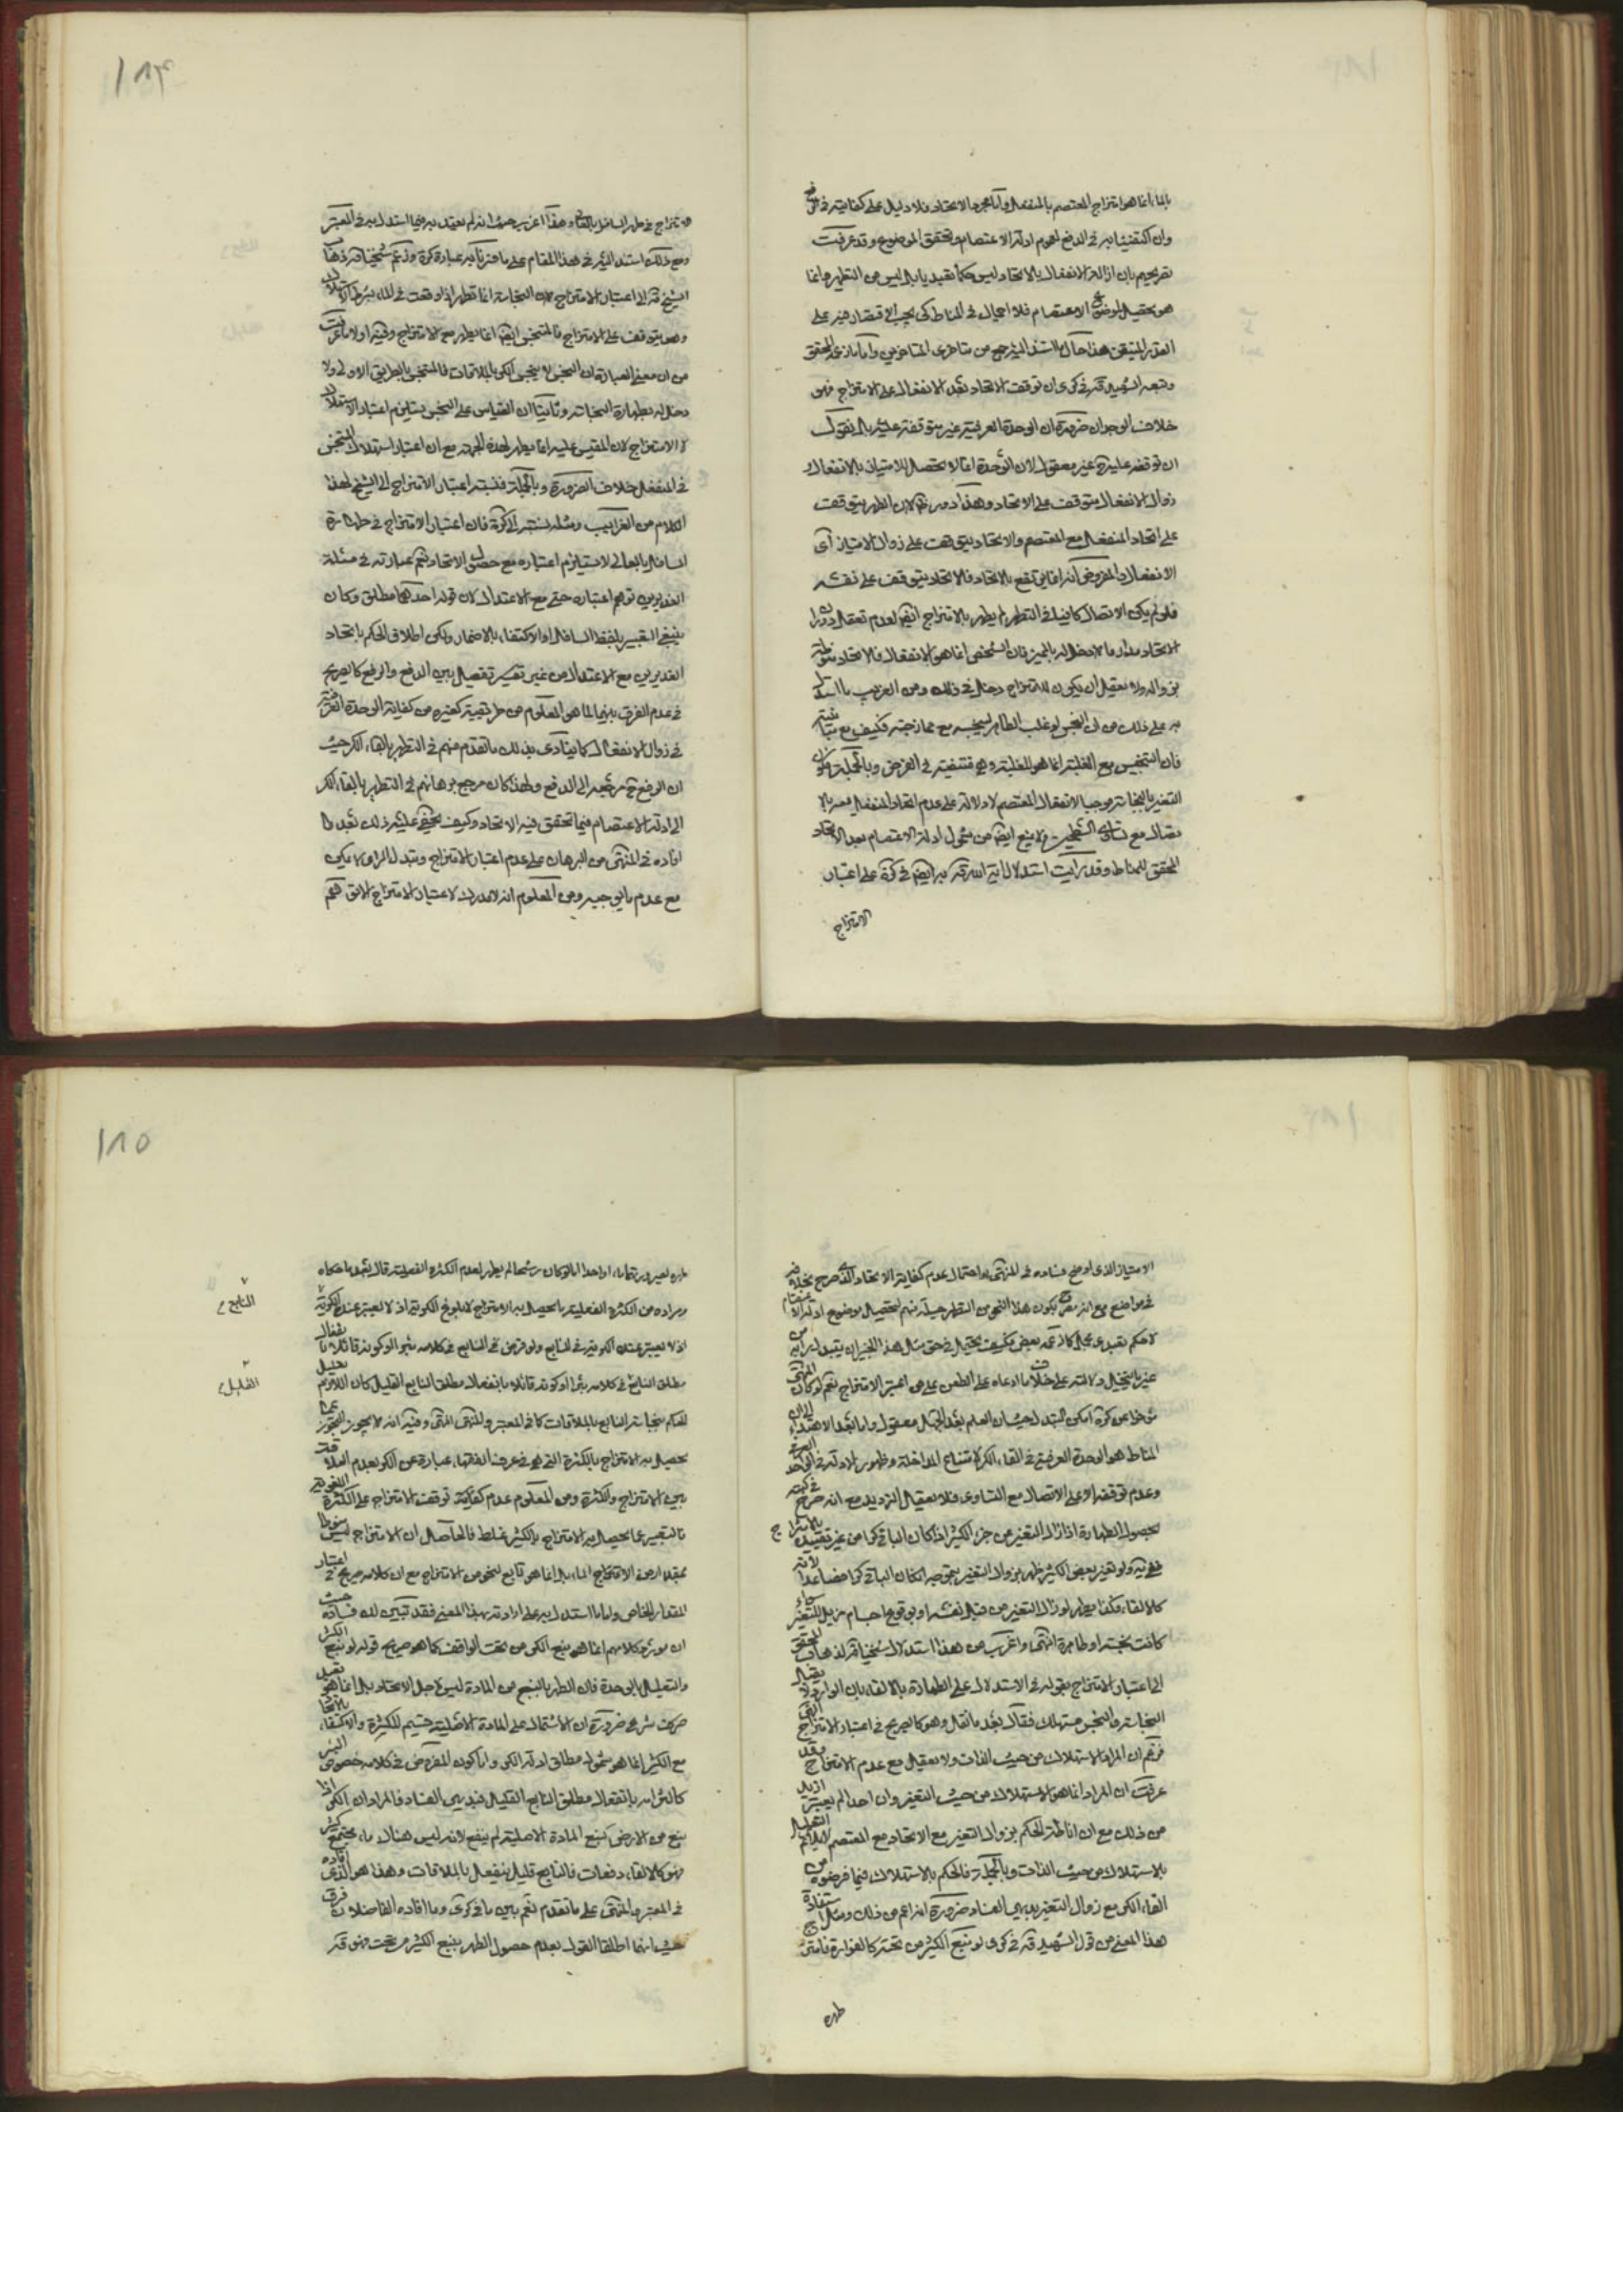 بالماء انما هو امتزاج المعتصم بالمنفعل واما مجرد الاتحاد فلا دليل على كفايته في
وان اكتفينا به في الدفع لعموم ادلة الاعتصام وتحقق الموضوع وقد عرفت
تصريحهم بان ازالة الانفعال بالاتحاد ليس حكما تعبديا بل ليس من التطهير وانما
هو تحصيل لموضوع الاعتصام فلا اجمال في المناط كي يجب الاقتصار فيه على
القدر المتيقن هذا حال ما استند اليه جمع من متأخرى المتأخرين واما ما زعمه المحقق
وتبعه الشهيد قده في كرى من توقف الاتحاد بعد الانفعال على الامتزاج فهو
خلاف الوجدان ضرورة ان الوحدة العرفية غير متوقفة عليه بل نقول
ان توقفه عليه غير معقول لان الوحدة انما لا تحصل للامتياز بالانفعال و
زوال الانفعال متوقف على الاتحاد وهذا دور ظاهر لان الطهر يتوقف
على اتحاد المنفعل مع المعتصم والاتحاد يتوقف على زوال الامتياز اى
الانفعال والمفروض انه انما يرتفع بالاتحاد فالاتحاد يتوقف على نفسه
فلو لم يكن الاتصال كافيا في التطهر لم يطهر بالامتزاج ايضا لعدم تعقل دوران
الاتحاد مدار ما لا دخل له بالميز فان المشخص انما هو الانفعال فالاتحاد منوط
بزواله ولا يعقل ان يكون للامتزاج دخل في ذلك ومن الغريب ما استدل
به على ذلك من ان النجس لو غلب الطاهر لنجسه مع ممازجته فكيف مع مباينته
فان التنجيس مع الغلبة انما هو للغلبة وهي منتفية في الفرض وبالجملة فكون
التغير بالنجاسة موجبا لانفعال المعتصم لا دلالة على عدم اتحاد المنفعل معه بالا
تصال مع تساوى السطحين ولا يمنع ايضا من شمول ادلة الاعتصام بعد الاتحاد
المحقق للمناط وقد رأيت استدلال اية الله قده به ايضا في كرة على اعتبار
الامتزاج
١٨٣
الامتزاج في طهر السافل بالعالي وهذا اعزب حيث انه لم يعتمد به فيما استدل به في المعتبر
ومع ذلك استند اليه في هذا المقام على ما هو تأكيد عبارة كرة وزعم شيخنا قده ذهاب
الشيخ قده الى اعتبار الامتزاج لان النجاسة انما تطهر اذا وقعت في الماء بشرط الاستهلاك
وهو يتوقف على الامتزاج فالمتنجس ايضا انما يطهر مع الامتزاج وفيه اولا ما عرفت
من ان معنى العبارة ان النجس لا ينجس الكر بالملاقات فالمتنجس بالطريق الاولى ولا
دخل له بطهارة النجاسة وثانيا ان القياس على النجس يستلزم اعتبار الاستهلاك
لا الامتزاج لان المقيس عليه انما يطهر لهذه الجهة مع ان اعتبار استهلاك المتنجس
في المنفعل خلاف الضرورة وبالجملة فنسبة اعتبار الامتزاج الى الشيخ لهذا
الكلام من الغرائب ومثله نسبته الى كرة فان اعتبار الامتزاج في طهارة
السافل بالعالي لا يستلزم اعتباره مع حصول الاتحاد نعم عبارته في مسئلة
الغديرين توهم اعتباره حتى مع الاعتدال لان قوله احدهما مطلق وكان
ينبغي التعبير بلفظ السافل او الاكتفاء بالاضمار ولكن اطلاق الحكم باتحاد
الغديرين مع الاعتدال من غير تفسير تفصيل بين الدفع والرفع كالصريح
في عدم الفرق بينهما لما هو المعلوم من طريقته كغيره من كفاية الوحدة العرفية
في زوال الانفعال كما ينادى بذلك ما تقدم منهم في التطهر بالقاء الكر حيث
ان الرفع ح مرجعه الى الدفع ولهذا كان مرجع برهانهم في التطهر بالقاء الكر
الى ادلة الاعتصام فيما تحقق فيه الاتحاد وكيف يخفى عليه ذلك بعد ما
افاده في المنتهى من البرهان على عدم اعتبار الامتزاج وتبدل الراى لا يكون
مع عدم ما يوجبه ومن المعلوم انه لا مدرك لاعتبار الامتزاج الا توهم
الامتياز الذى اوضح فساده في المنتهى واحتمال عدم كفاية الاتحاد الذى صرح بخلافه
في مواضع مع انه يكون هذا النحو من التطهر حيلة منهم لتحصيل موضوع ادلة الاعتصام
لا حكم تعبدى محض كما زعمه بعض فكيف يحتمل في حق مثل هذا الخبير ان يتبدل رايه
على خلاف ما ادعاه على الطعن على من اعتبر الامتزاج نعم لو كان المنتهى
مؤخرا عن كرة امكن التبدل حيث ان العلم بعد الجهل معقول واما بعد الاهتداء الى ان
المناط هو الوحدة العرفية في القاء الكر لامتناع المداخلة وظهور الادلة في الواحد العرفي
وعدم توقفه الا على الاتصال مع التساوى فلا يعقل الترديد مع انه صرح في كتبه
بحصول الطهارة اذا زال التغير من جزء الكثير اذا كان الباقي كرا من غير تقييد بالامتزاج
ففي يه ولو تغير بعض الكثير طهر بزوال التغير بتموجه ان كان الباقي كرا فصاعدا لانه
كالالقاء وكذا يطهر لو زال التغير من قبل نفسه او بوقوع اجسام مزيلة للتغير سواء
كانت نجسة او طاهرة انتهى واغرب من هذا استدلال شيخنا قده لذهاب المحقق
الى اعتبار الامتزاج بقوله في الاستدلال على الطهارة بالالقاء بان الوارد لا يقبل
النجاسة والنجس مستهلك فقال بعد ما نقل وهو كالصريح في اعتبار الامتزاج انتهى
فزعم ان المراد الاستهلاك من حيث الذات ولا يعقل مع عدم الامتزاج وقد
عرفت ان المراد انما هو الاستهلاك من حيث التغير وان احدا لم يعتبر ازيد
من ذلك مع ان اناطة الحكم بزوال التغير مع الاتحاد مع المعتصم لا يلائم التعليل
بالاستهلاك من حيث الذات وبالجملة فالحكم بالاستهلاك فيما فرضوه من
القاء الكر مع زوال التغير بديهى الفساد ضرورة انه اعم من ذلك ومثل استفادة
هذا المعنى من قول الشهيد قده في كرى لو نبع الكثير من تحته كالفوارة فامتزج
طهره
١٨٥
طهره لصيرورتهما ماء واحدا اما لو كان رشحا لم يطهر لعدم الكثرة الفعلية قال بعد ما حكاه
ومراده من الكثرة الفعلية ما يحصل به الامتزاج لا بلوغ الكرية اذ لا يعتبر عنده الكرية في النابع
اذ لا يعتبر عنده الكرية في النابع ولو فرض في النابع في كلامه بئرا لو كونه قائلا بانفعال
مطلق النابع في كلامه بئرا او كونه قائلا بانفعال مطلق النابع القليل كان اللازم تعليل القليل
الحكم بنجاسة النابع بالملاقات كما في المعتبر والمنتهى انتهى وفيه انه لا يجوز التجوز عما
يحصل به الامتزاج بالكثرة التي هي في عرف الفقهاء عبارة عن الكر بعدم العلاقة
بين الامتزاج والكثرة ومن المعلوم عدم كفاية توقف الامتزاج على الكثرة اللغوية
فالتعبير عما يحصل به الامتزاج بالكثير غلط فالحاصل ان الامتزاج ليس منوطا
بمقدار من الماء بل انما هو تابع لنحو من الامتزاج مع ان كلامه صريح في اعتبار
المقدار الخاص واما ما استدل به على ارادته بهذا المعنى فقد تبين لك فساده حيث
ان مورد كلامهم انما هو نبع الكر من تحت الواقف كما هو صريح قوله لو نبع الكثير
والتعليل بالوحدة فان الطهر بالنبع من المادة ليس لاجل الاتحاد بل انما هو تعبد
صرف شرعى ضرورة ان الاشتمال على المادة الاصلية قسيم للكثرة والاكتفاء بالاتحاد
مع الكثير انما هو بشمول مطلق ادلة الكر واما كون المفروض في كلامه خصوص البئر
كالتزامه بانفعال مطلق النابع القليل فبديهى الفساد فالمراد ان الكر اذا
نبع من الارض كنبع المادة الاصلية لم ينفع لانه ليس هناك ماء مجتمع كثير
فهو كالالقاء دفعات فالنابع قليل ينفعل بالملاقات وهذا هو الذى افاده
في المعتبر والمنتهى على ما تقدم نعم بين ما في كرى وما افاده الفاضلان فرق
حيث انهما اطلقا القول بعدم حصول الطهر بنبع الكثير من تحت وهو قده